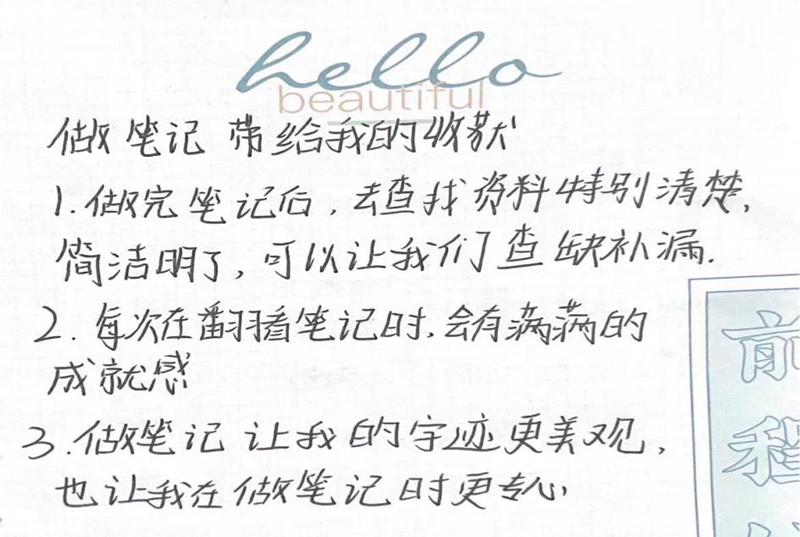 hello
beautiful
做笔记 带给我的收获
1. 做完笔记后,去查找资料特别清楚,
简洁明了,可以让我们查缺补漏.
2. 每次在翻看笔记时,会有满满的
成就感
3. 做笔记 让我的字迹更美观,
也让我在做笔记时更专心
前
程